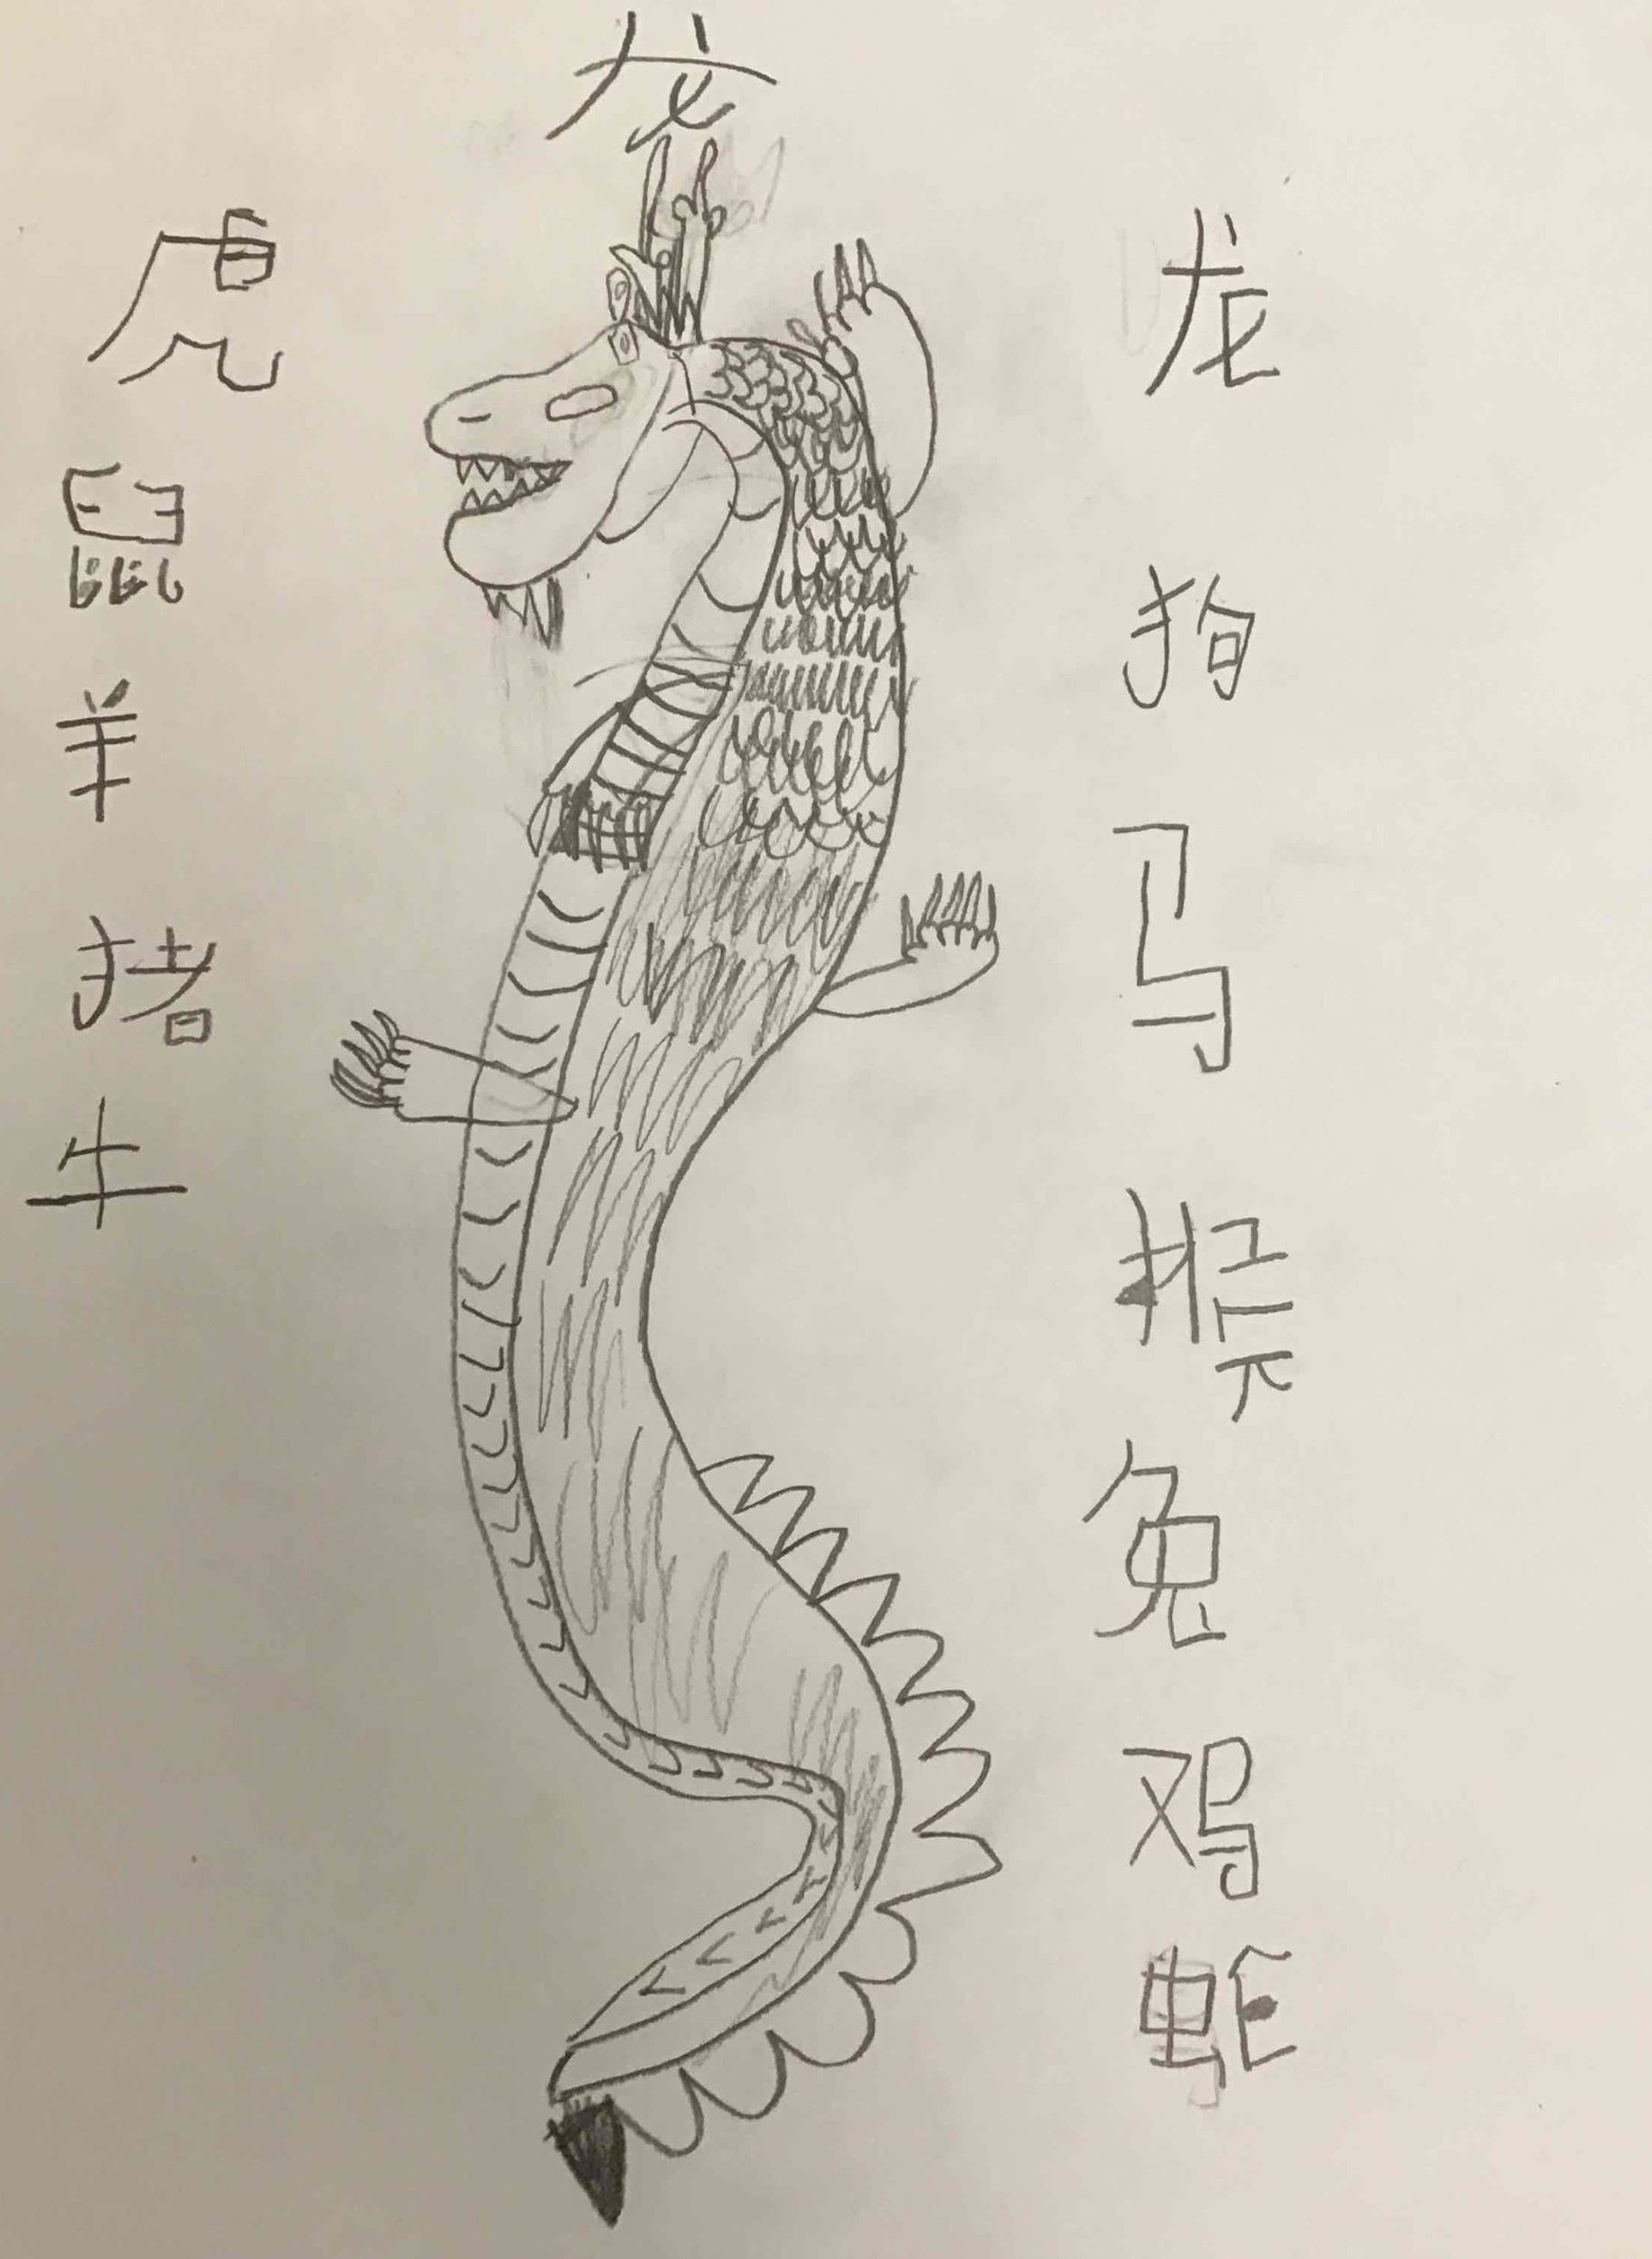 龙
虎
鼠
羊
猪
牛
龙
狗
马
猴
兔
鸡
蛇